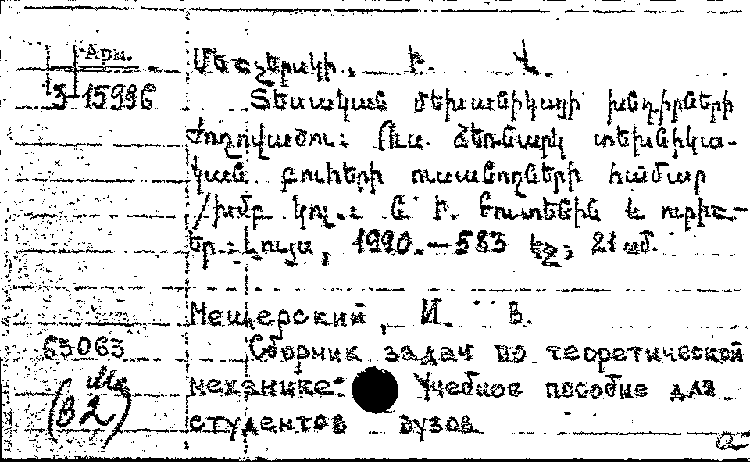 Арм.
Մեշչերսկի, Ի. Վ.
3-15996
Տեսական մեխանիկայի խնդիրների
ժողովածու: Ուս. ձեռնարկ տեխնիկա-
կան բուհերի ուսանողների համար
/խմբ. կոլ.: Ե. Ի. Բուտենին և ուրիշ-
ներ.- Լույս, 1990.—583 էջ, 21 սմ.
Мещерский, И. В.
63063
Сборник задач по теоретической
механике: Учебное пособие для
(82)
студентов вузов